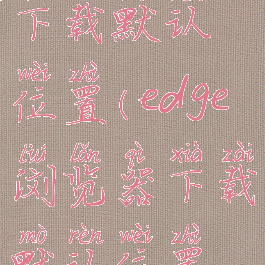 下载默认
wèi zhì
位置(edge
liú lǎn qì xià zài
浏览器下载
mò rèn wèi zhì
默认位置